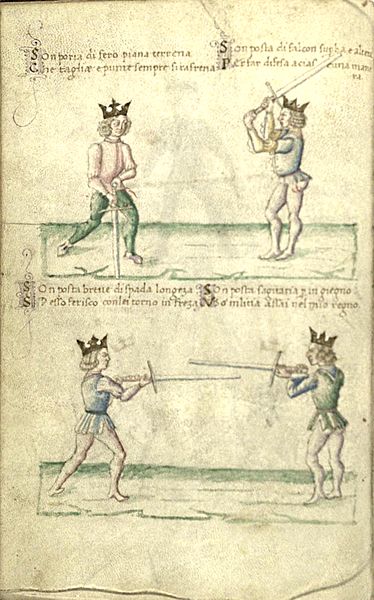 Son porta di fero piana terrena
Che tagli e punte sempre si rafrena
Son posta di falcon supba e altera
Per far difesa a cias cuna mane
ra.
Son posta breve di spada longeza
Spesso ferisco con lei torno in freza
Son posta sagitaria p ingiegno
Vo militia assai nel mio regno